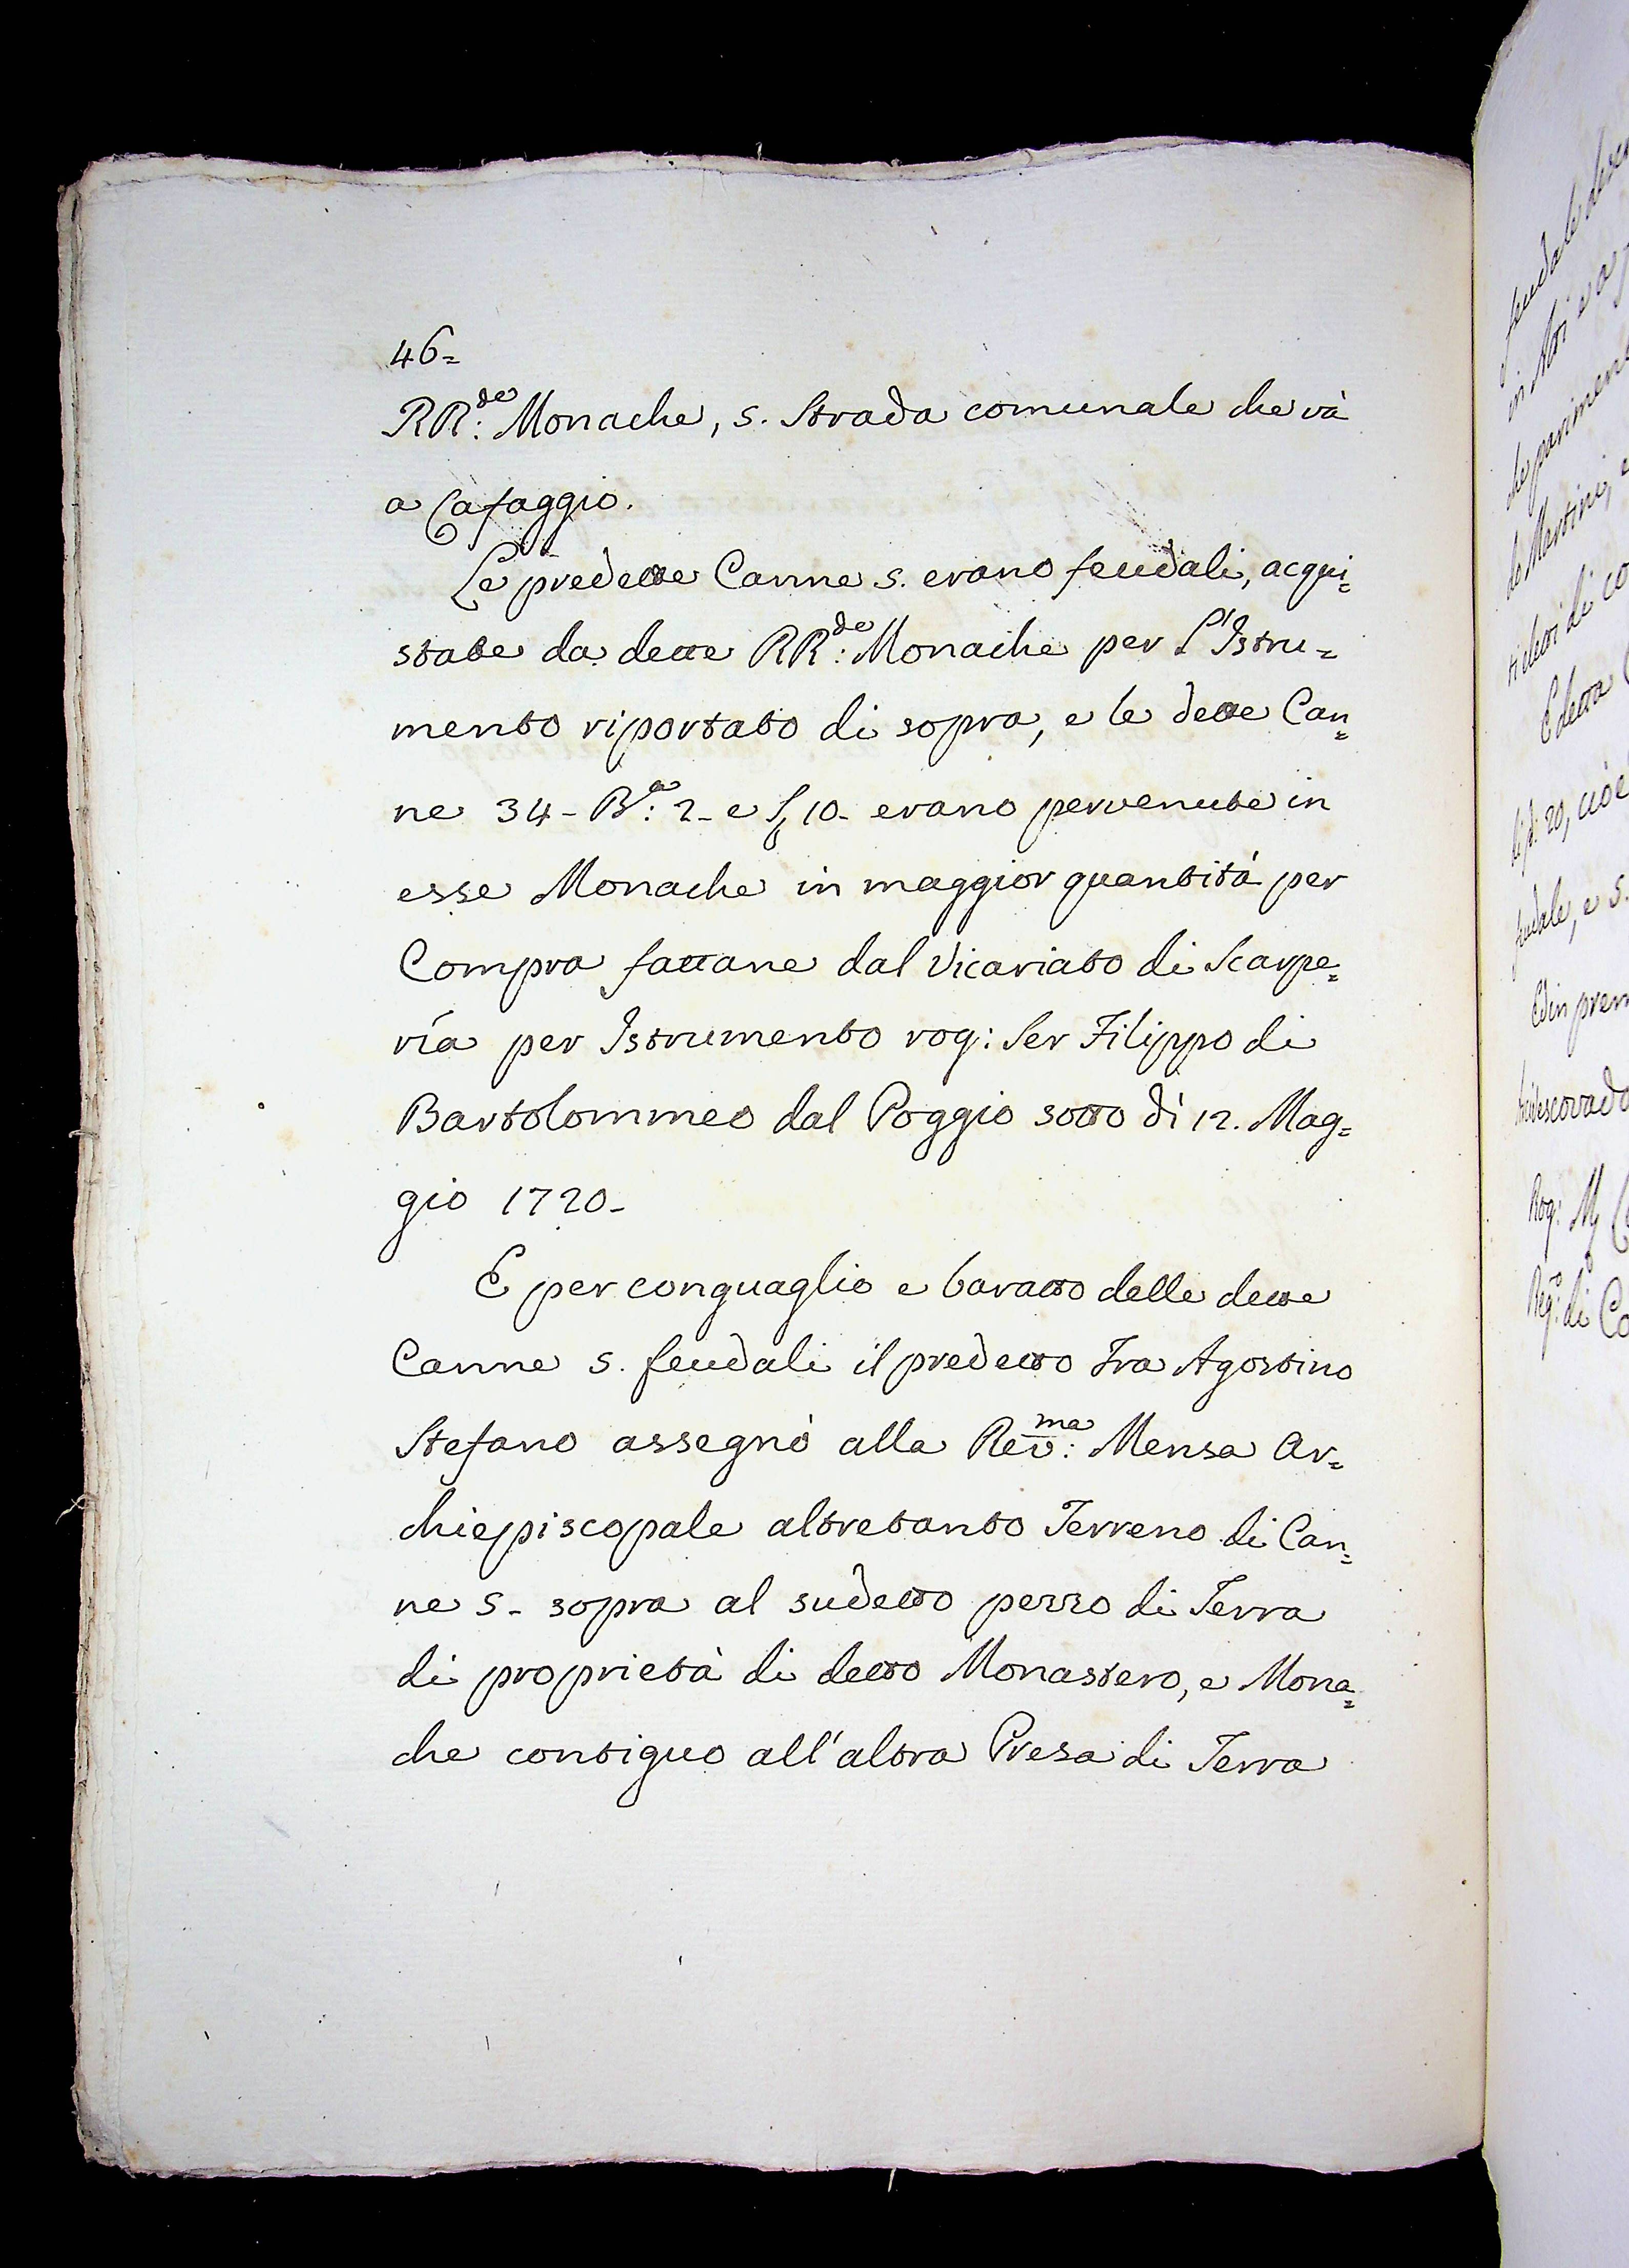 46=
RR:de Monache, 5. Strada comunale che và
a Cafaggio.
Le predette Canne 5. erano feudali, acqui=
state da dette RR:de Monache per l'Istru=
mento riportato di sopra, e le dette Can=
ne 34- B:a 2- e 10- erano pervenute in
esse Monache in maggior quantità per
Compra fattane dal Vicariato di Scarpe=
ria per Istrumento rog: Ser Filippo di
Bartolommeo dal Poggio sotto dì 12. Mag=
gio 1720-
E per conguaglio e baratto delle dette
Canne 5. feudali il predetto Fra Agostino
Stefano assegnò alla Rev:ma Mensa Ar=
chiepiscopale altretanto Terreno di Can=
ne 5- sopra al sudetto pezzo di Terra
di proprietà di detto Monastero, e Mona=
che contiguo all'altra Presa di Terra
feudale
in
che
de Martini,
detti di
E detta
20, cioè
feudale, e 5.
Ed in
Rog:
Reg:o di